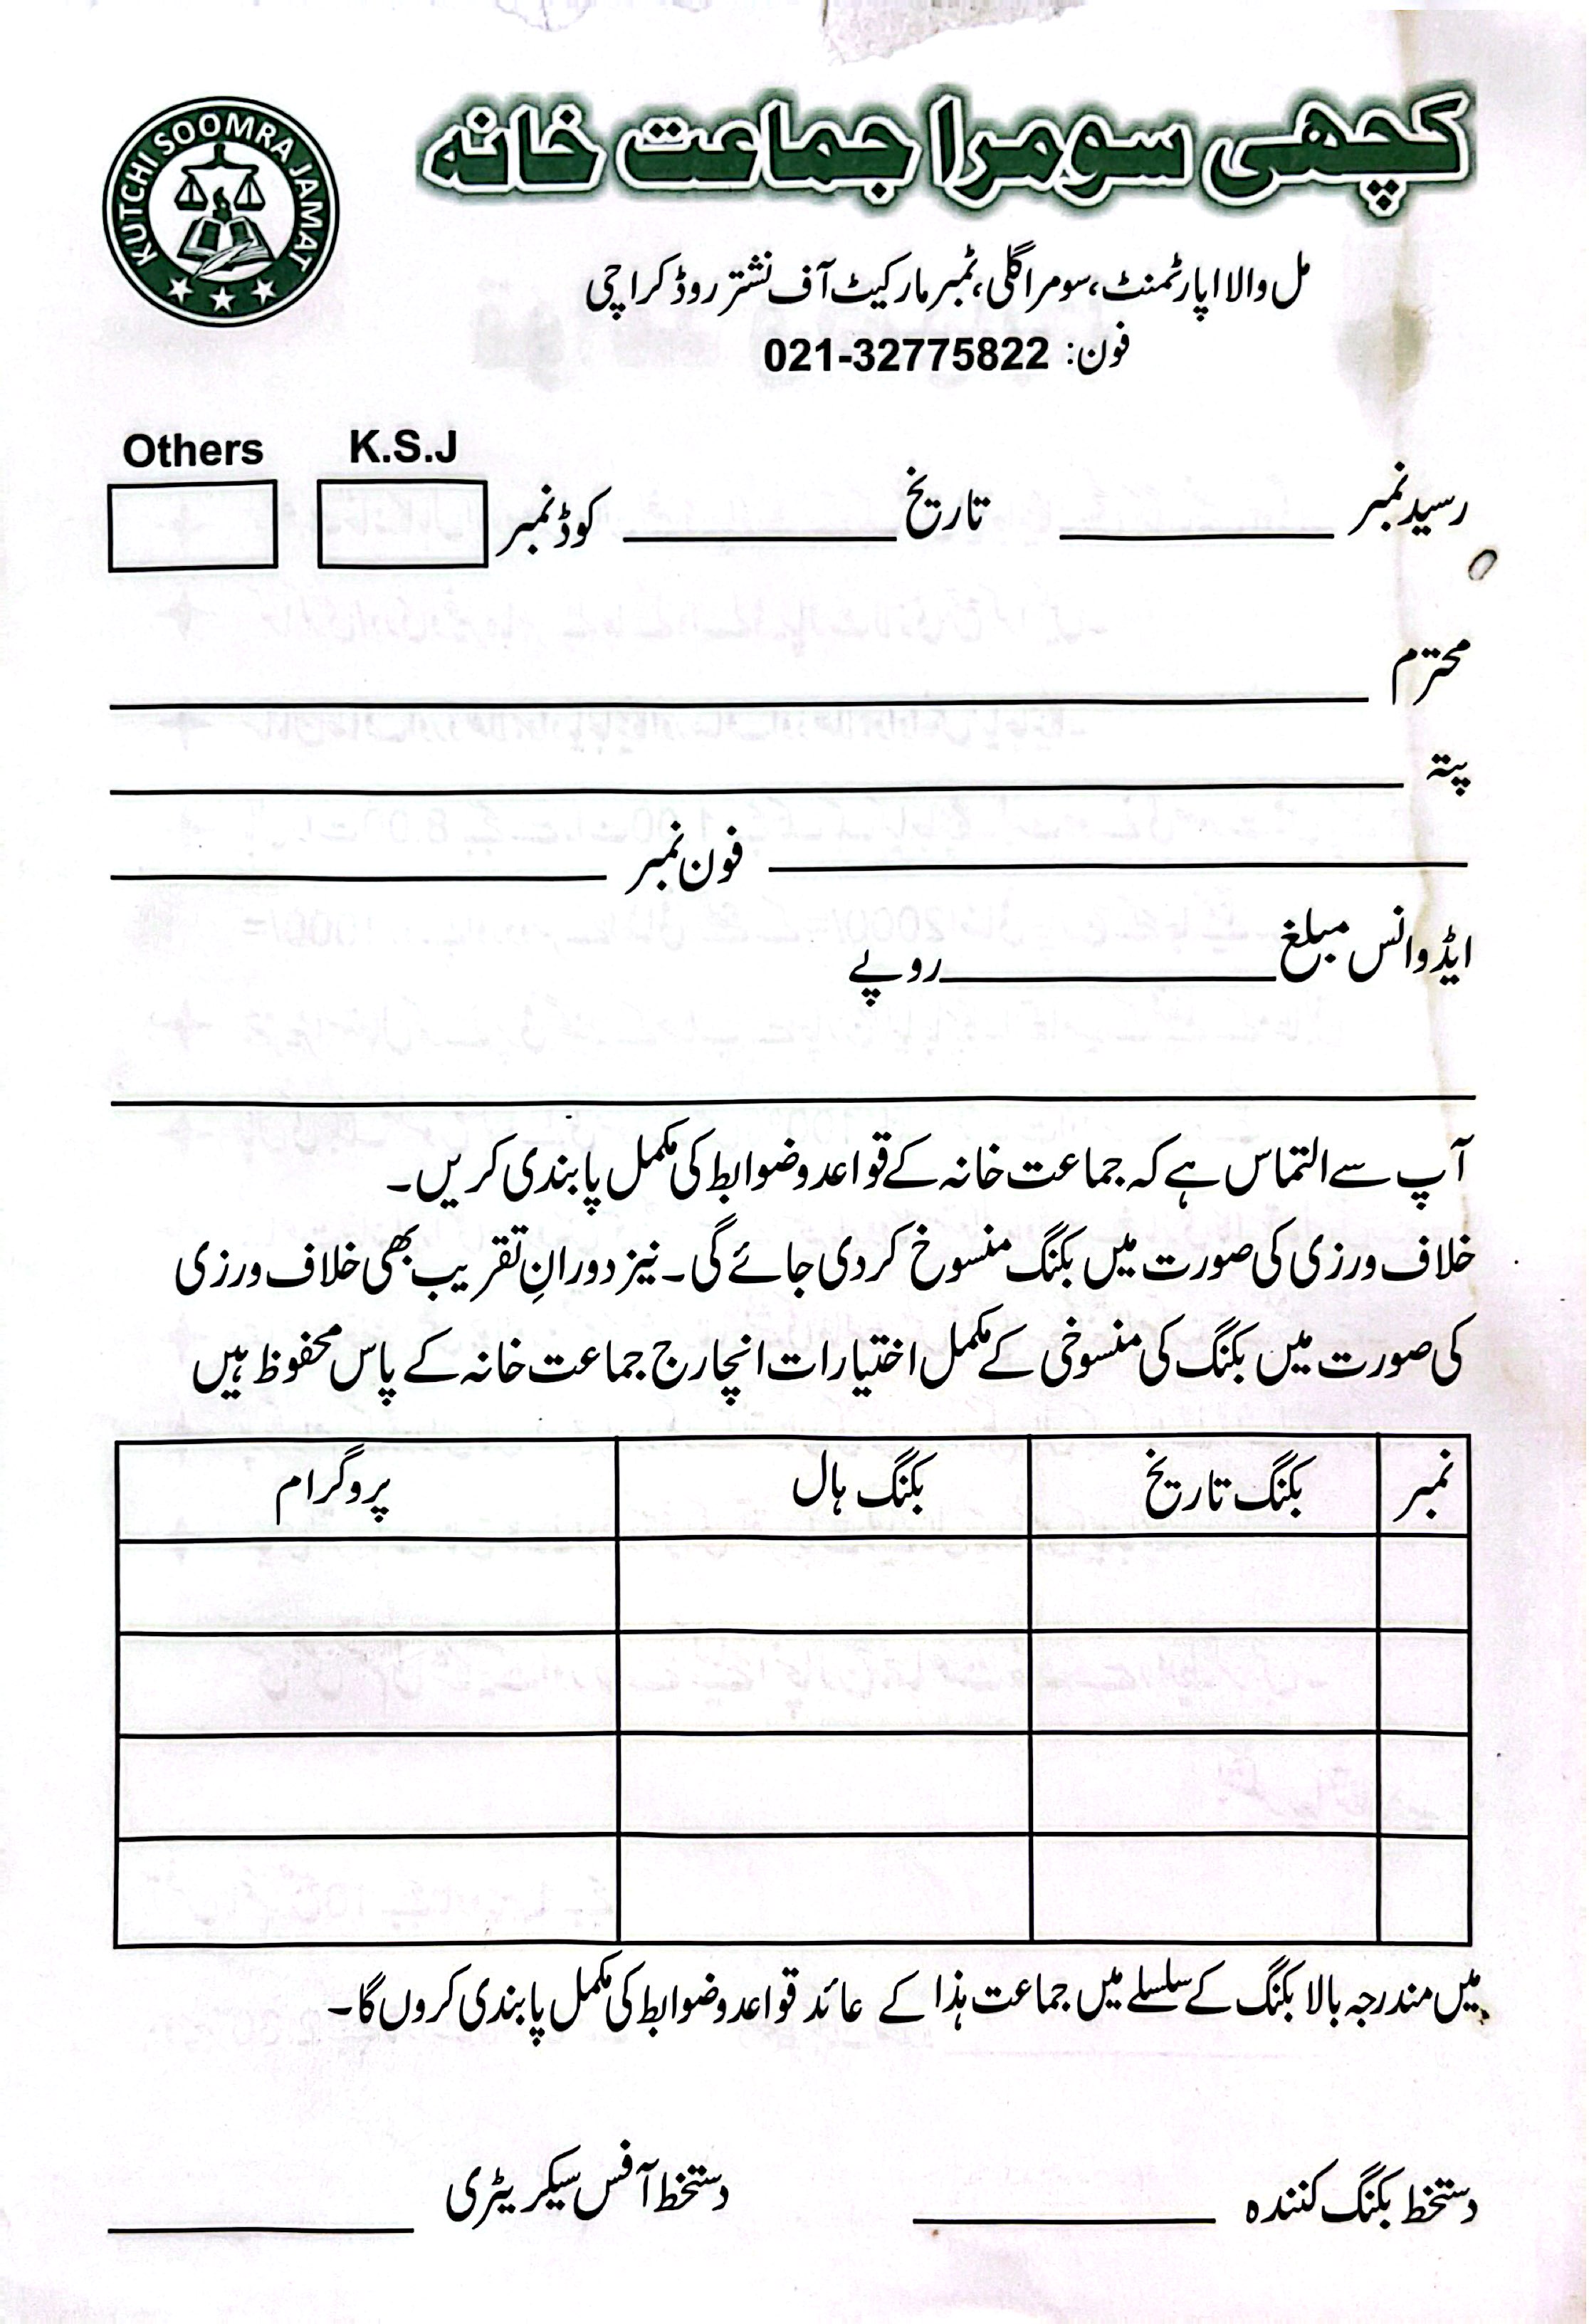 KUTCHI SOOMRA JAMAT
کچھی سومرا جماعت خانہ
مل والا اپارٹمنٹ، سومرا گلی، ٹمبر مارکیٹ آف نشتر روڈ کراچی
فون: 021-32775822
K.S.J Others
رسید نمبر ________ تاریخ ________ کوڈ نمبر
محترم
پتہ
فون نمبر
ایڈوانس مبلغ ________ روپے
آپ سے التماس ہے کہ جماعت خانہ کے قواعد وضوابط کی مکمل پابندی کریں۔
خلاف ورزی کی صورت میں بکنگ منسوخ کردی جائے گی۔ نیز دورانِ تقریب بھی خلاف ورزی
کی صورت میں بکنگ کی منسوخی کے مکمل اختیارات انچارج جماعت خانہ کے پاس محفوظ ہیں
نمبر بکنگ تاریخ بکنگ ہال پروگرام
میں مندرجہ بالا بکنگ کے سلسلے میں جماعت ہذا کے عائد قواعد وضوابط کی مکمل پابندی کروں گا۔
دستخط بکنگ کنندہ ________ دستخط آفس سیکریٹری ________